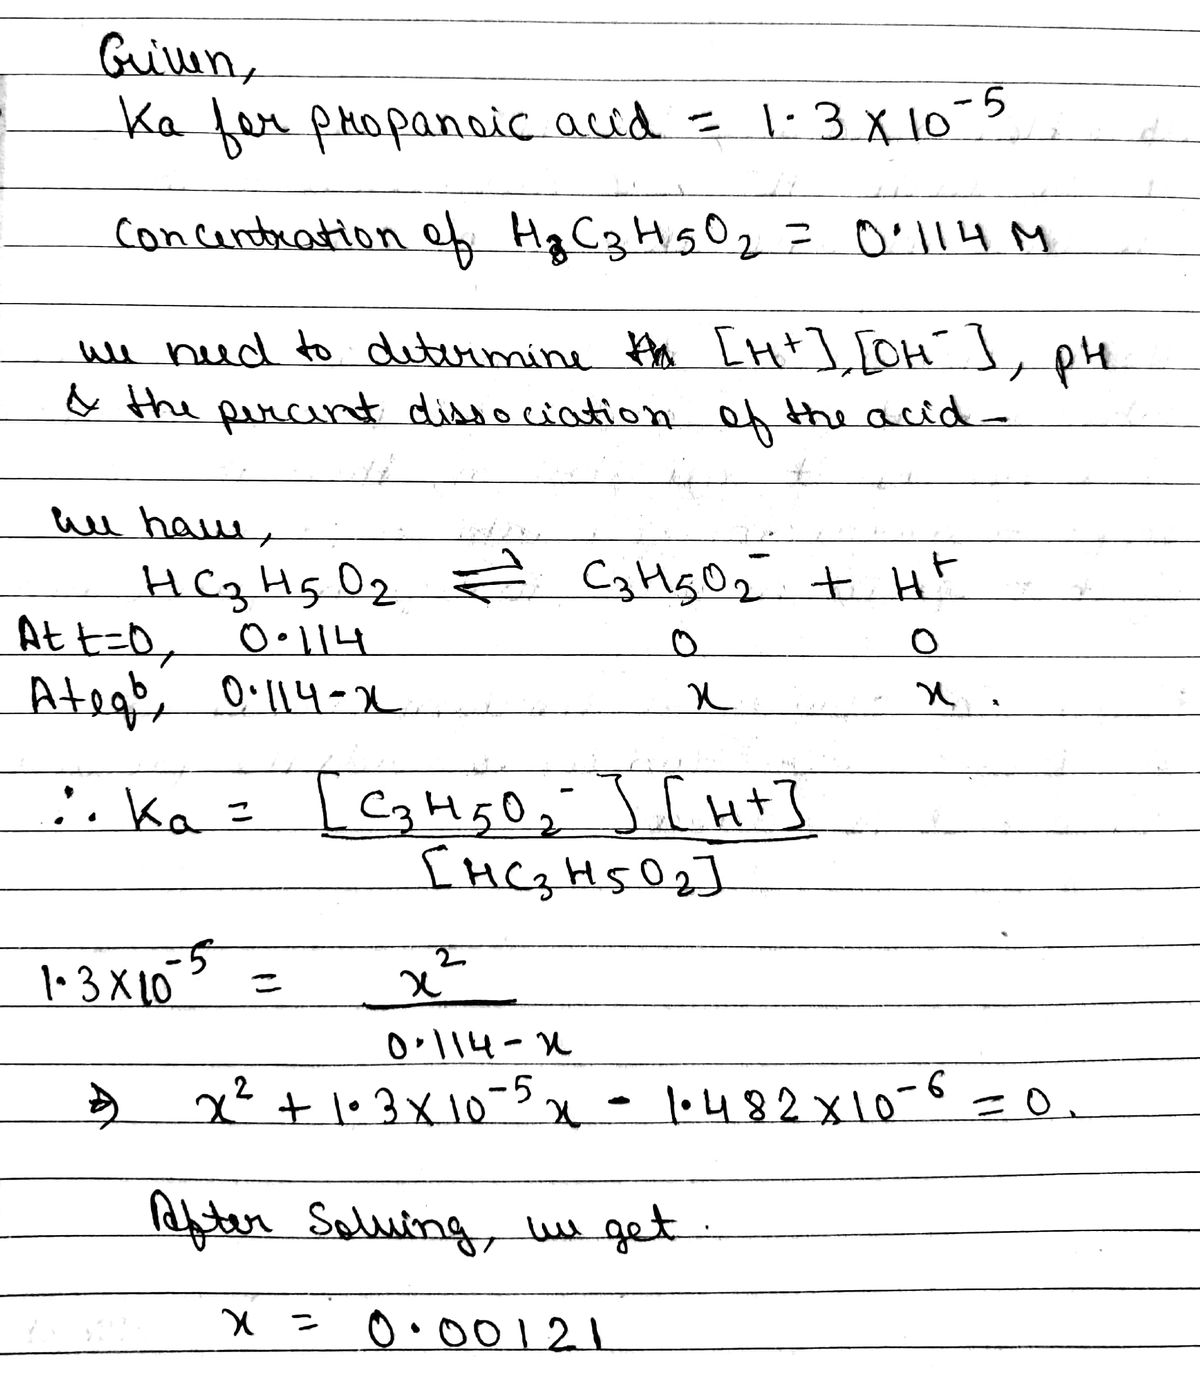 Given,
Ka for propanoic acid = 1.3 × 10⁻⁵
Concentration of H₃C₃H₅O₂ = 0.114 M
we need to determine [H⁺], [OH⁻], pH
& the percent dissociation of the acid -
we have,
HC₃H₅O₂ ⇌ C₃H₅O₂⁻ + H⁺
At t=0, 0.114 0 0
At eqᵇ, 0.114-x x x .
∴ Ka = [C₃H₅O₂⁻] [H⁺]
[HC₃H₅O₂]
1.3×10⁻⁵ = x²
0.114-x
⇒ x² + 1.3×10⁻⁵x - 1.482×10⁻⁶ = 0.
After solving, we get.
x = 0.00121